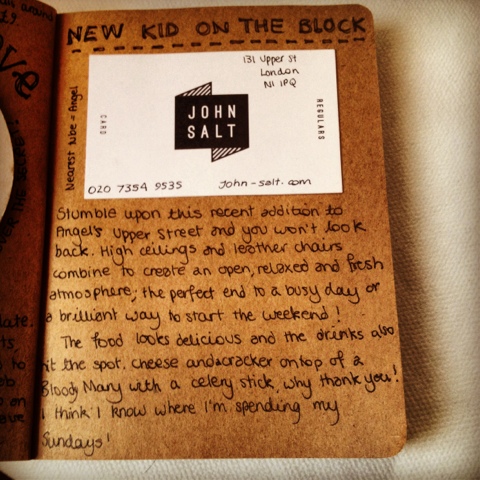 NEW KID ON THE BLOCK
131 Upper St
London
N1 1PQ
Nearest tube = Angel
CARD
JOHN
SALT
REGULARS
020 7354 9535
John-salt.com
Stumble upon this recent addition to
Angel's Upper Street and you won't look
back. High ceilings and leather chairs
combine to create an open, relaxed and fresh
atmosphere; the perfect end to a busy day or
a brilliant way to start the weekend!
The food looks delicious and the drinks also
hit the spot. Cheese and cracker on top of a
Bloody Mary with a celery stick, why thank you!
I think I know where I'm spending my
Sundays!